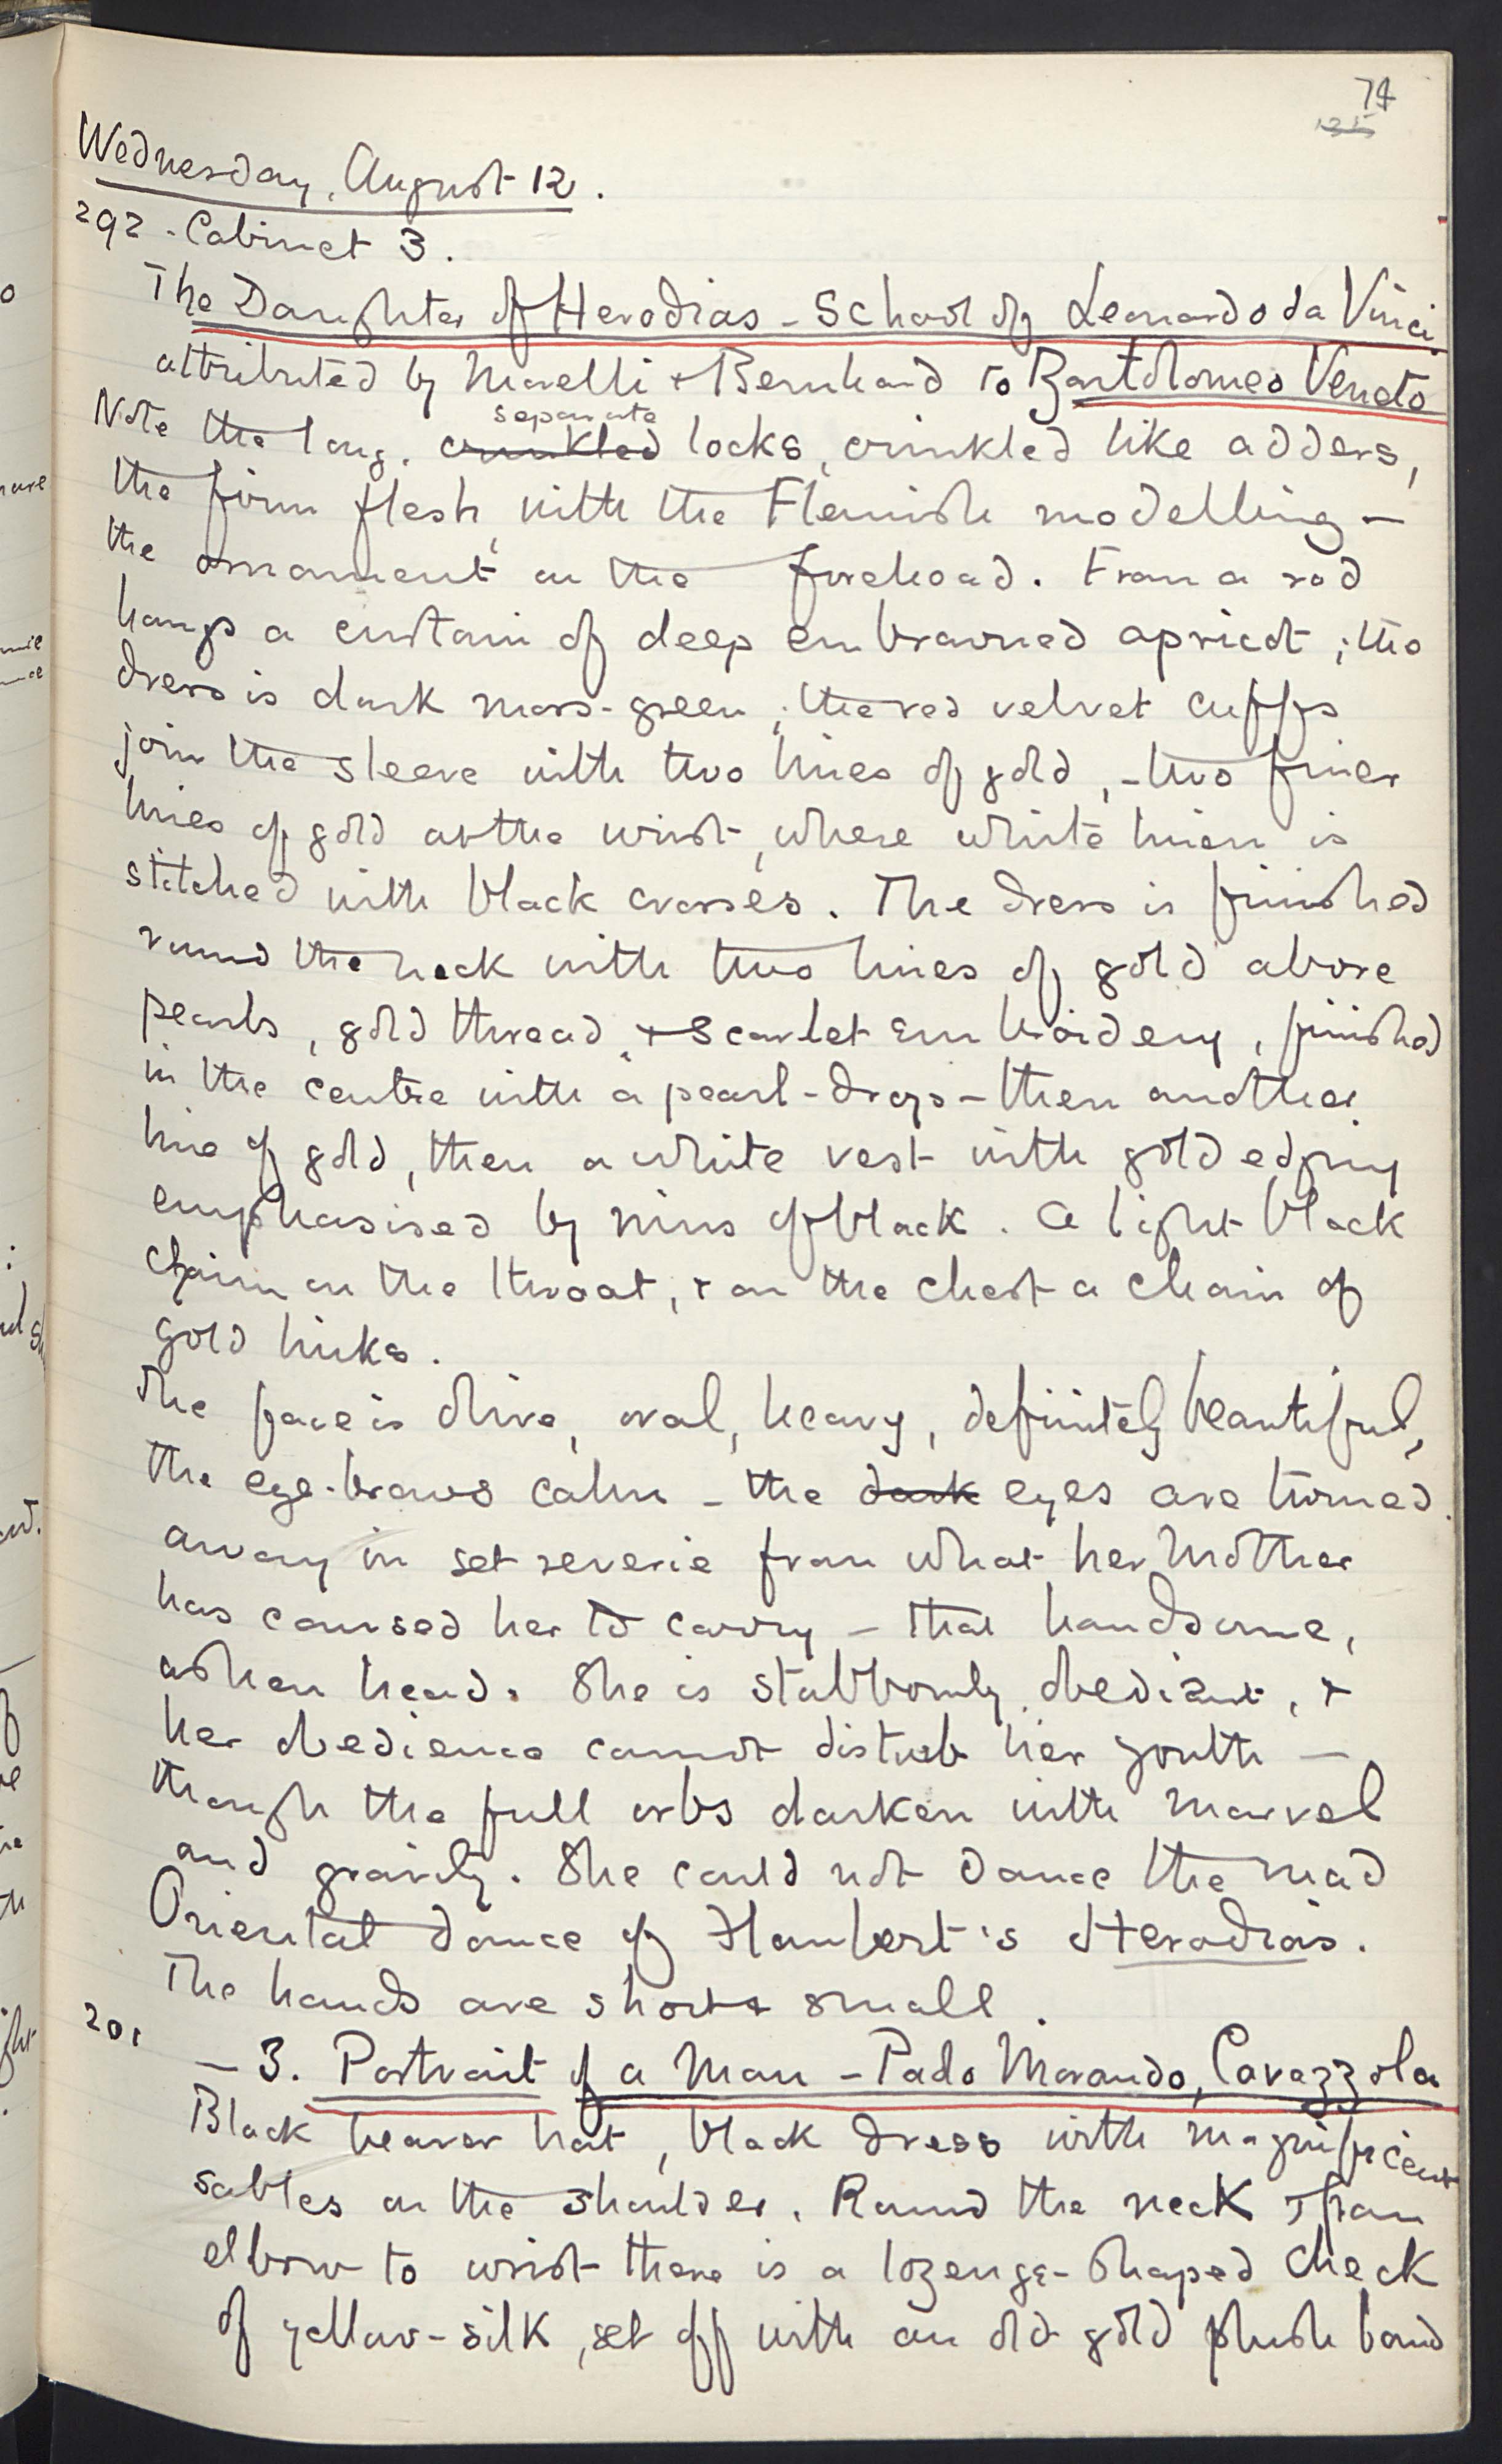 74
125
Wednesday, August 12.
292 - Cabinet 3.
The Daughter of Herodias - School of Leonardo da Vinci.
attributed by Morelli + Bernhard to Bartolomeo Veneto
separate
Note the long, crinkled locks, crinkled like adders,
the firm flesh, with the Flemish modelling —
the ornament on the forehead. From a rod
hangs a curtain of deep embrowned apricot; the
dress is dark moss-green; the red velvet cuffs
join the sleeve with two lines of gold, - two finer
lines of gold at the wrist, where white linen is
stitched with black crosses. The dress is finished
round the neck with two lines of gold above
pearls, gold thread, + scarlet embroidery, finished
in the centre with a pearl-drop - then another
line of gold, then a white vest with gold edging
emphasised by rims of black. A light black
chain on the throat, + on the chest a chain of
gold links.
The face is olive, oval, heavy, definitely beautiful,
the eye-brows calm - the dark eyes are turned
away in set reverie from what her Mother
has caused her to carry - that handsome,
ashen head. She is stubbornly obedient, +
her obedience cannot disturb her youth —
though the full orbs darken with marvel
and gravity. She could not dance the mad
Oriental dance of Flaubert's Herodias.
The hands are short + small.
201
- 3. Portrait of a Man - Paolo Morando, Cavazzola
Black beaver hat, black dress with magnificent
sables on the shoulder. Round the neck + from
elbow to wrist there is a lozenge-shaped check
of yellow-silk, set off with an old gold plush band